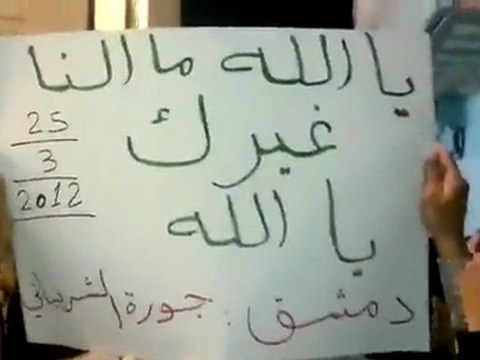 يا الله ما النا
غيرك
يا الله
25
3
2012
دمشق : جورة الشريباتي